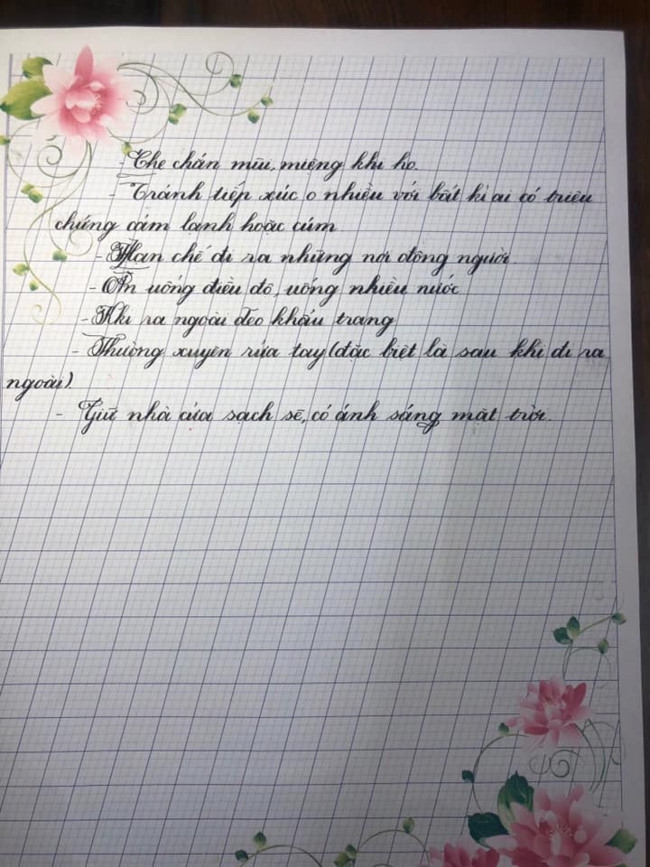 - Che chắn mũi, miệng khi ho.
- Tránh tiếp xúc o nhiều với bất kì ai có triệu
chứng cảm lạnh hoặc cúm
- Hạn chế đi ra những nơi đông người
- Ăn uống điều độ, uống nhiều nước
- Khi ra ngoài đeo khẩu trang
- Thường xuyên rửa tay (đặc biệt là sau khi đi ra
ngoài).
- Giữ nhà cửa sạch sẽ, có ánh sáng mặt trời.